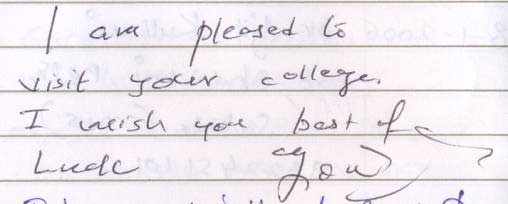 I am pleased to
visit your college.
I wish you best of
Luck